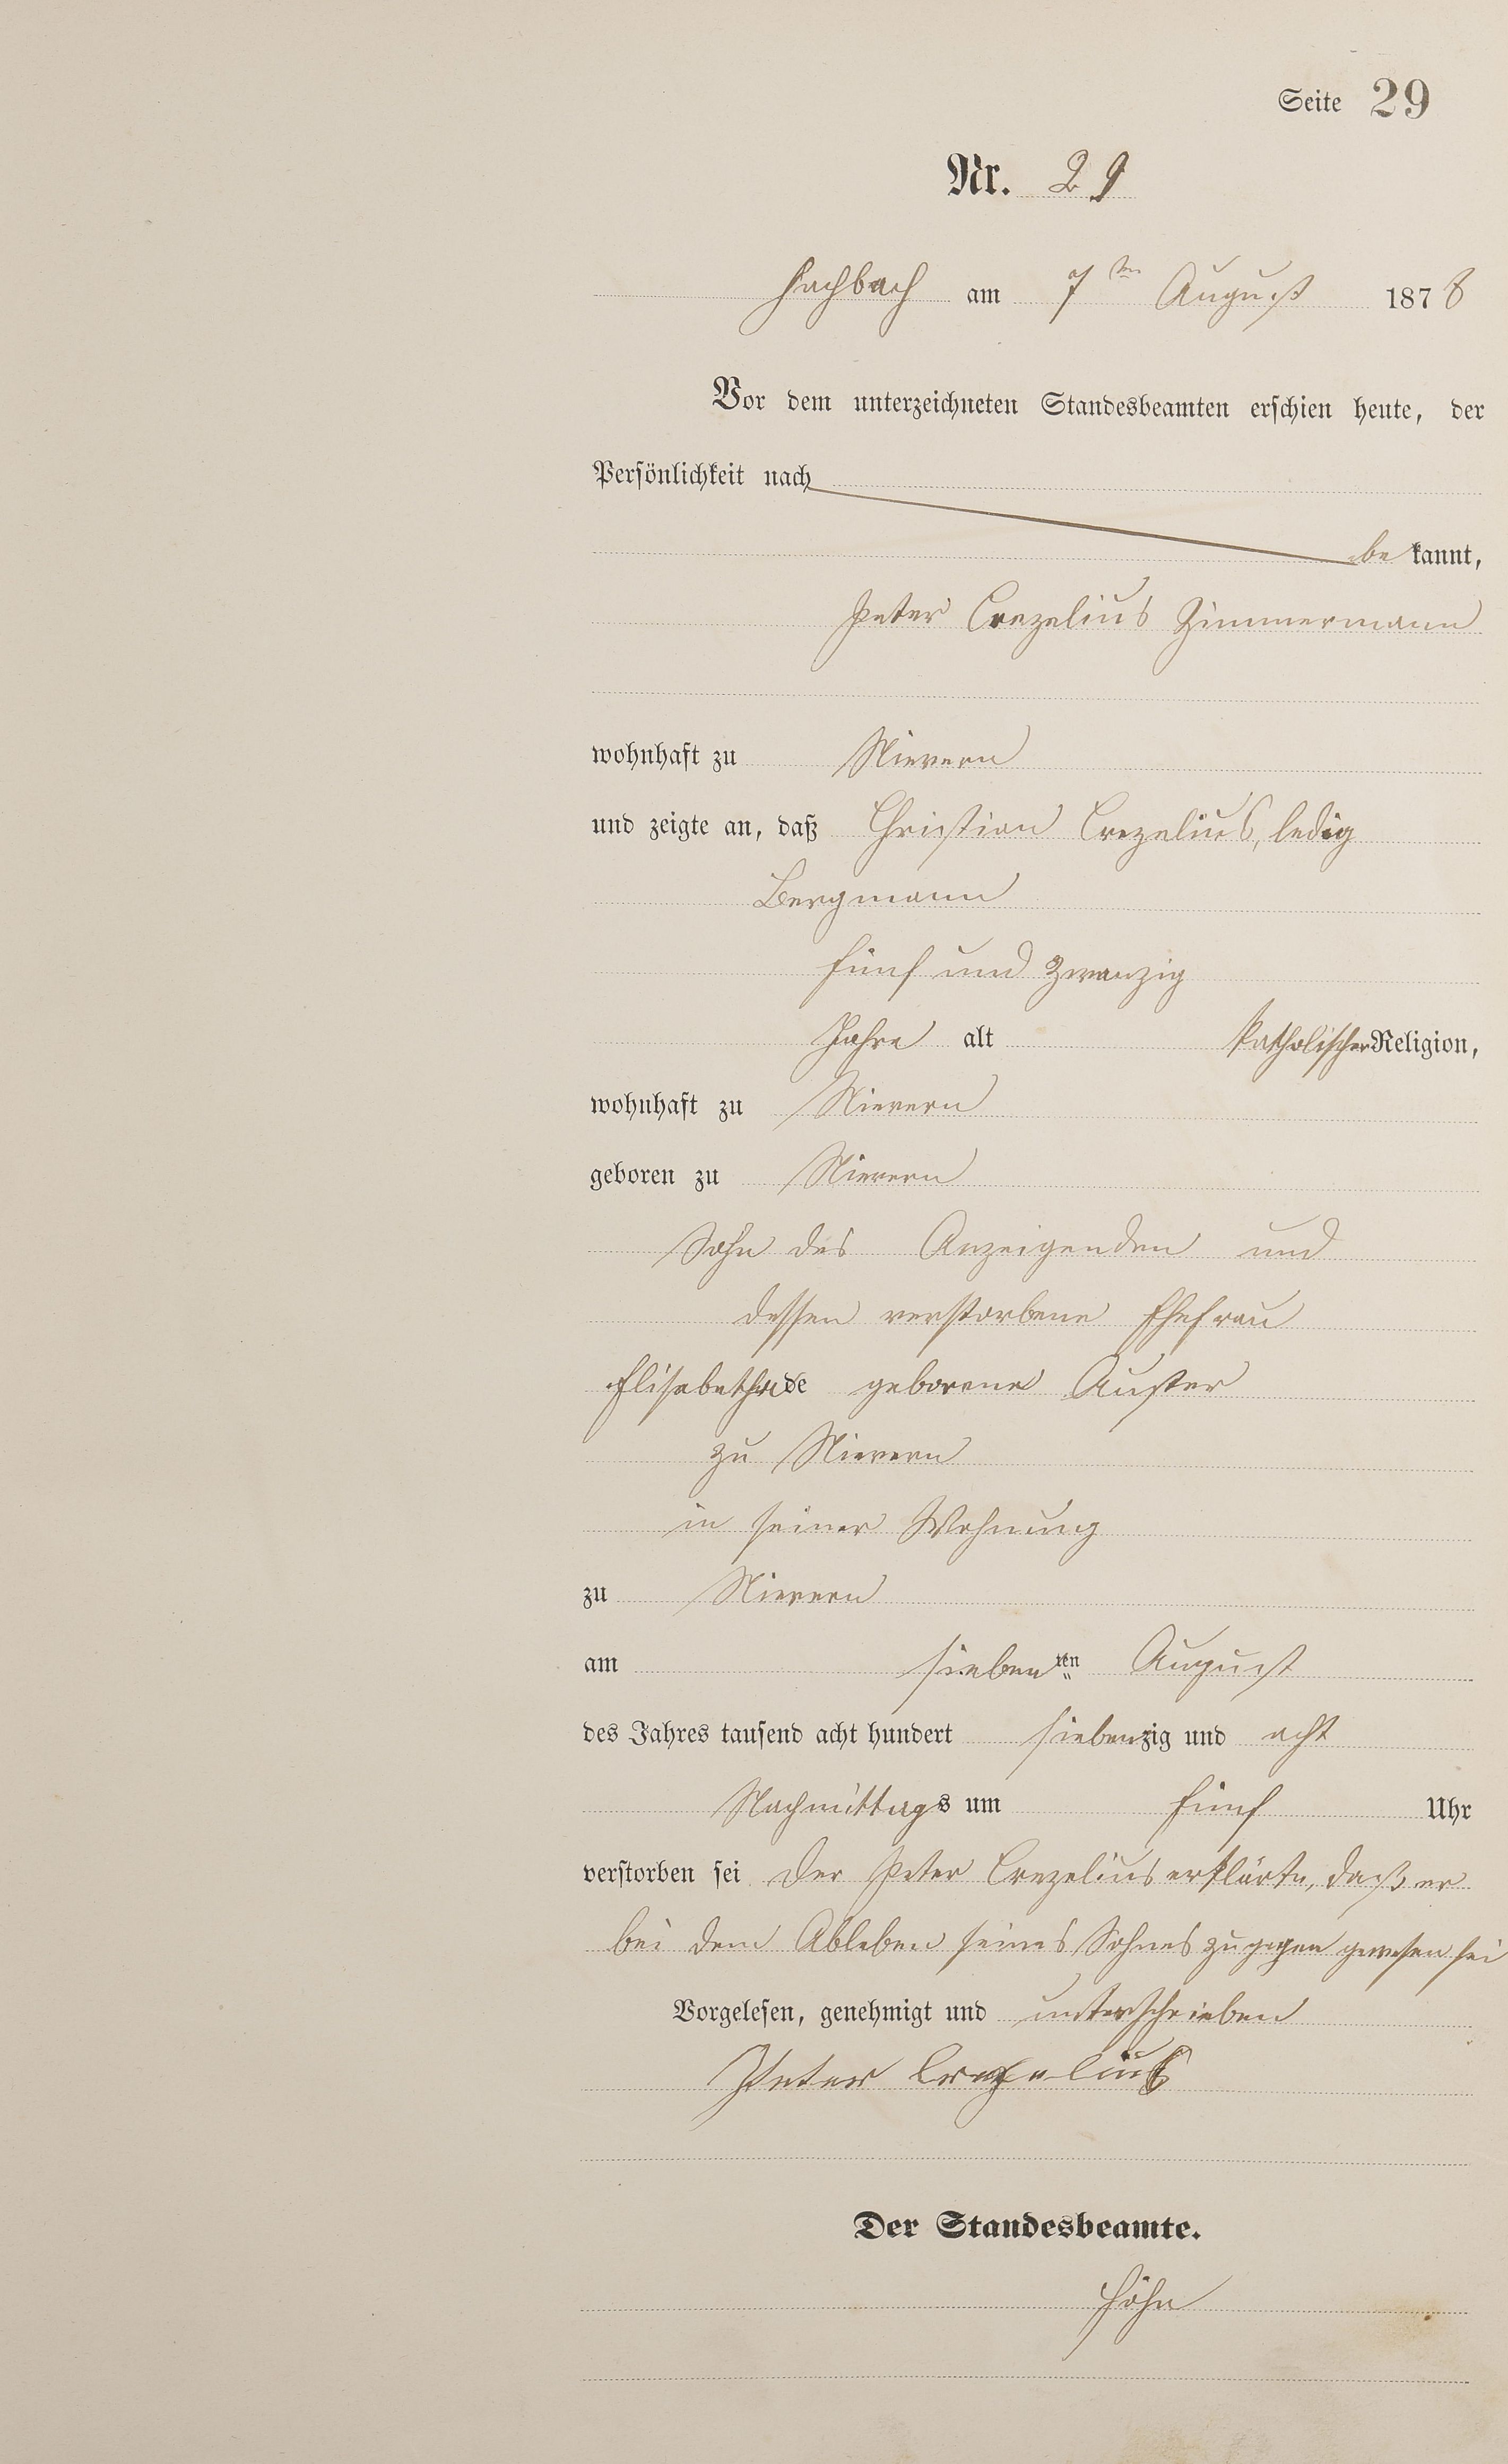 Seite 29
Nr. 29
Fachbach am 7ten August 1878
Vor dem unterzeichneten Standesbeamten erschien heute, der
Persönlichkeit nach
be kannt,
Peter Crezelius Zimmermann
wohnhaft zu Nievern
und zeigte an, daß Christian Crezelius, ledig
Bergmann
fünf und zwanzig
Jahre alt katholischer Religion,
wohnhaft zu Nievern
geboren zu Nievern
Sohn des Anzeigenden und
dessen verstorbene Ehefrau
geborene Auster
zu Nievern
in seiner Wohnung
zu Nievern
am siebenten August
des Jahres tausend acht hundert siebenzig und acht
Nachmittags um fünf Uhr
verstorben sei Der Peter Crezelius erklärte, daß er
bei dem Ableben seines Sohnes zugegen gewesen sei
Vorgelesen, genehmigt und unterschrieben
Peter Crezelius
Der Standesbeamte.
Höhn